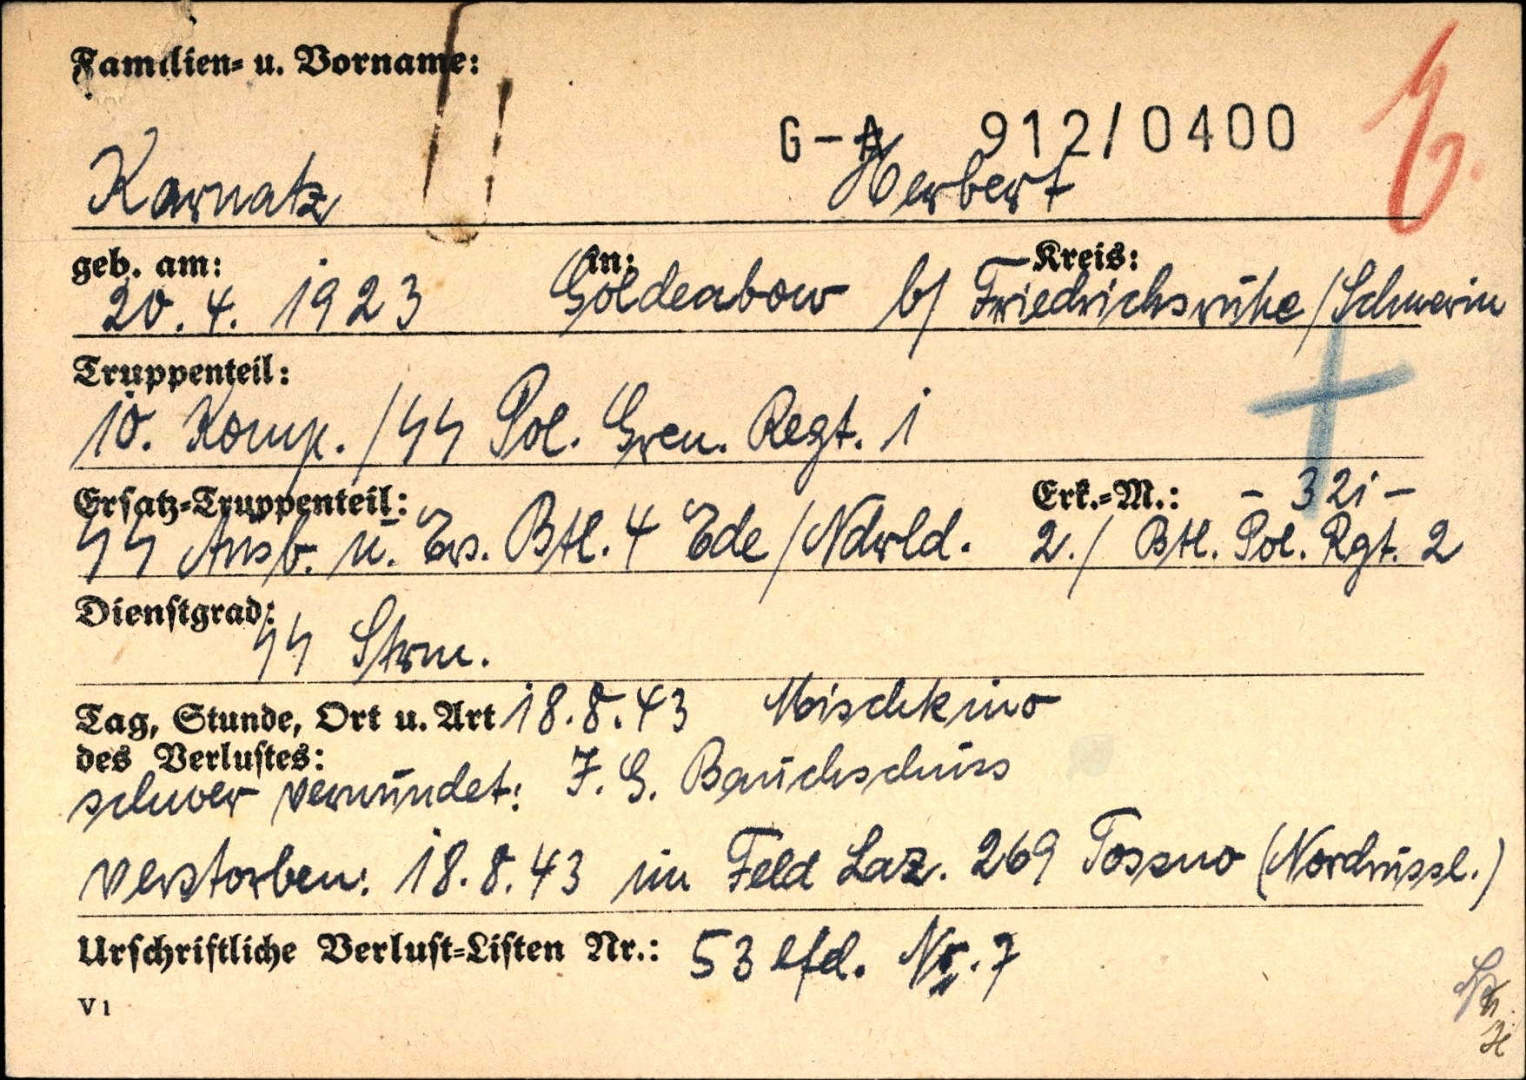 Familien- u. Vorname:
G-A 912/0400
E.
Karnatz Herbert
geb. am: in: Kreis:
20.4. 1923 Goldenbow b/ Friedrichsruhe/Schwerin
Truppenteil:
10. Komp./SS Pol. Gren. Regt. 1
Ersatz-Truppenteil: Erk.-M.: - 321 -
SS Ausb. u. Ers. Btl. 4 Ede/Ndrld. 2./ Btl. Pol. Rgt. 2
Dienstgrad:
SS Strm.
Tag, Stunde, Ort u. Art 18.8.43 Mischkino
des Verlustes:
schwer verwundet: I.G. Bauchschuss
verstorben: 18.8.43 im Feld Laz. 269 Tossno (Nordrussl.)
Urschriftliche Verlust-Listen Nr.: 53 lfd. Nr. 7
V 1